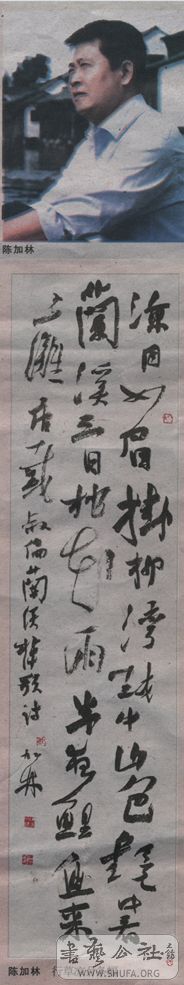 陈加林
凉月如眉挂柳湾越中山色镜中看
兰溪三日桃花雨半夜鲤鱼来
上滩 唐戴叔伦兰溪棹歌诗 加林
陈加林 行草
書藝公社
WWW.SHUFA.ORG